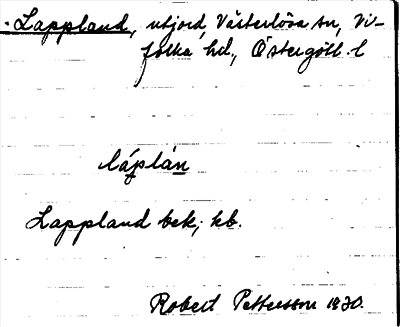 · Lappland, utjord, Västerlösa sn, Vi-
folka hd., Östergötl. l
láplán
Lappland bek., kb.
Robert Pettersson 1930.